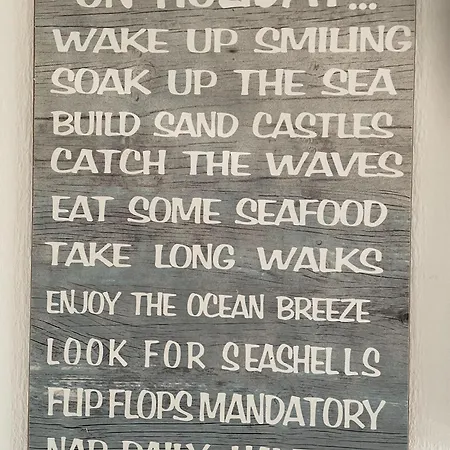 ON HOLIDAY...
WAKE UP SMILING
SOAK UP THE SEA
BUILD SAND CASTLES
CATCH THE WAVES
EAT SOME SEAFOOD
TAKE LONG WALKS
ENJOY THE OCEAN BREEZE
LOOK FOR SEASHELLS
FLIP FLOPS MANDATORY
NAP DAILY